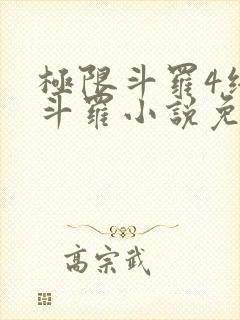 極限斗羅4
斗羅小說免
高宗武